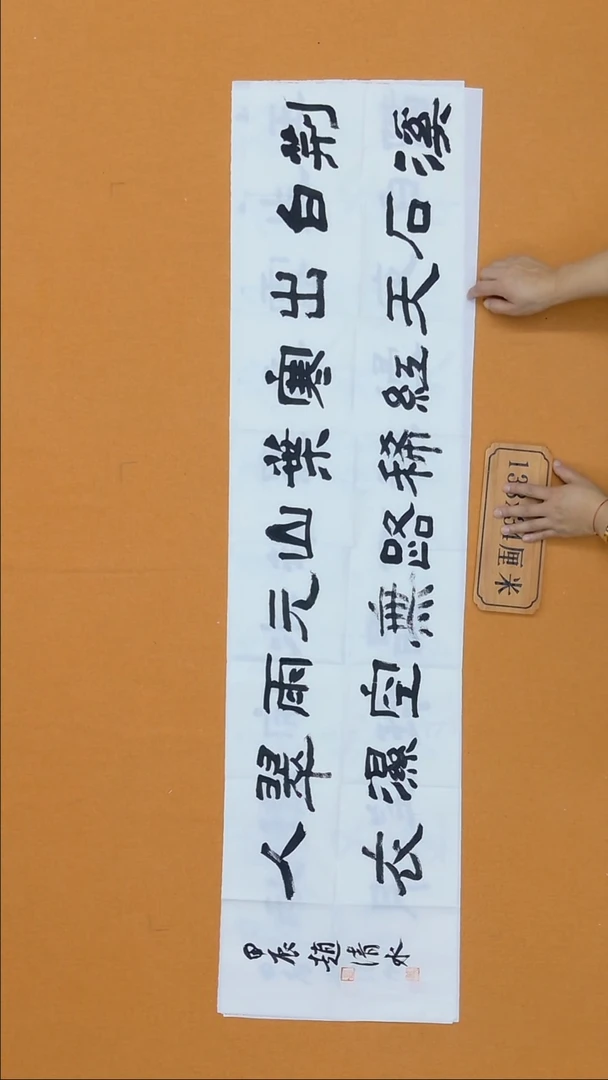 荆溪
白石
出天
寒紅
葉稀
山路
元無
雨空
翠濕
人衣
甲辰趙清水
厘米